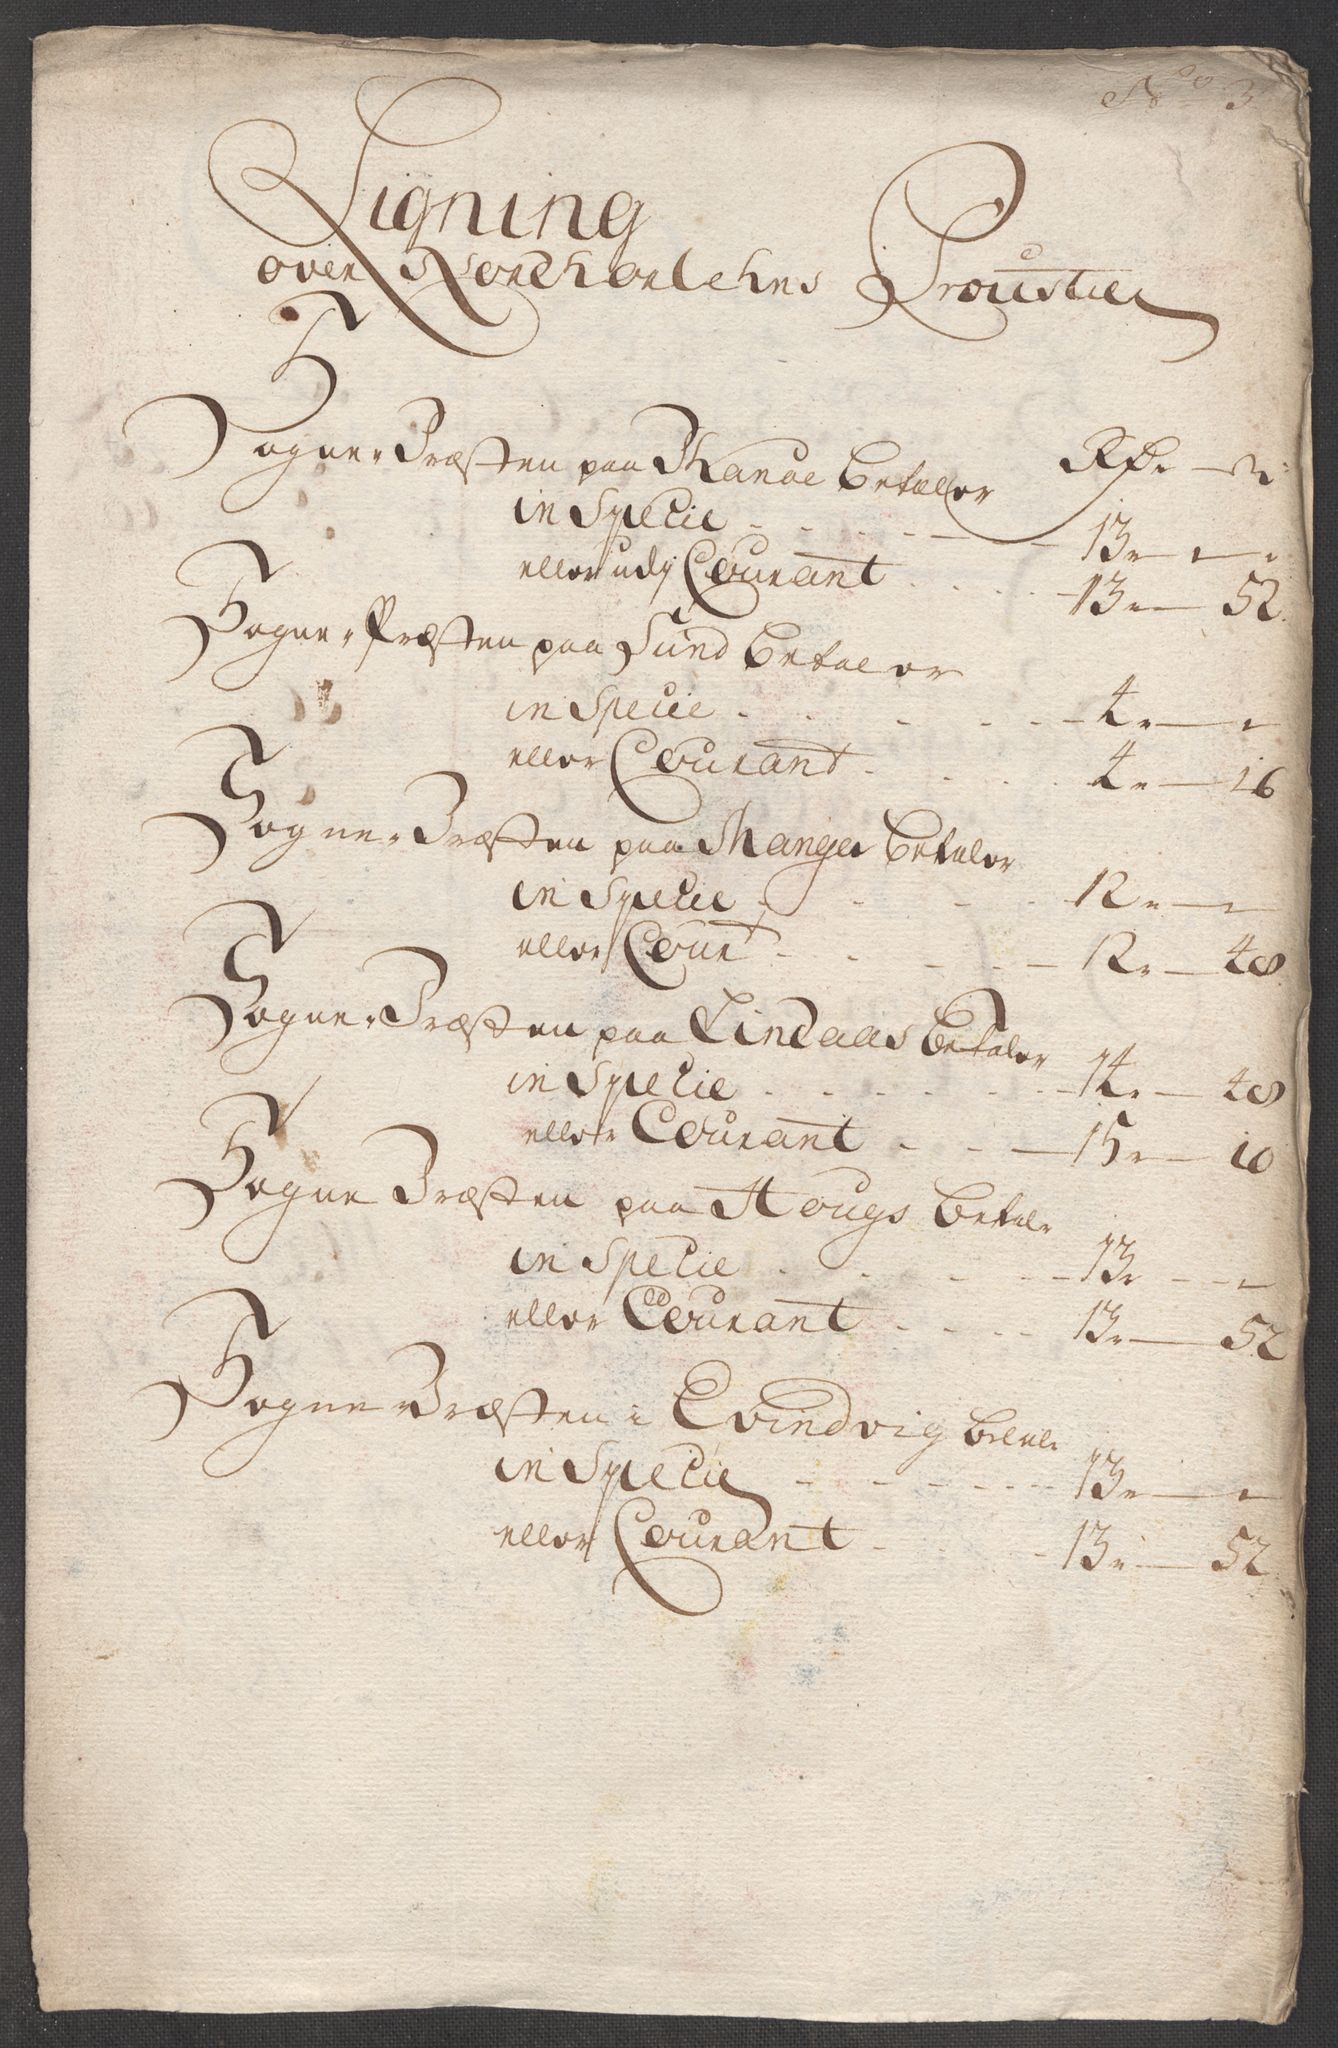 No 3
Ligning
over Nordhorlehns Proustie
Sogne-Præsten paa Manøe Betaler Rdr
in Specie 13
eller udj Courant 13 52
Sogne-Præsten paa Sund Betaler
in Specie 4
eller Courant 4 16
Sogne-Præsten paa Manger Betaler
in Specie 12
eller Cour 12 48
Sogne-Præsten paa Lindaas Betaler
in Specie 14 48
eller Courant 15 10
Sogne Præsten paa Hougs Betaler
in Specie 13
eller Courant 13 52
Sogne Præsten i Evindvig betale
in Specie 13
eller Courant 13 52